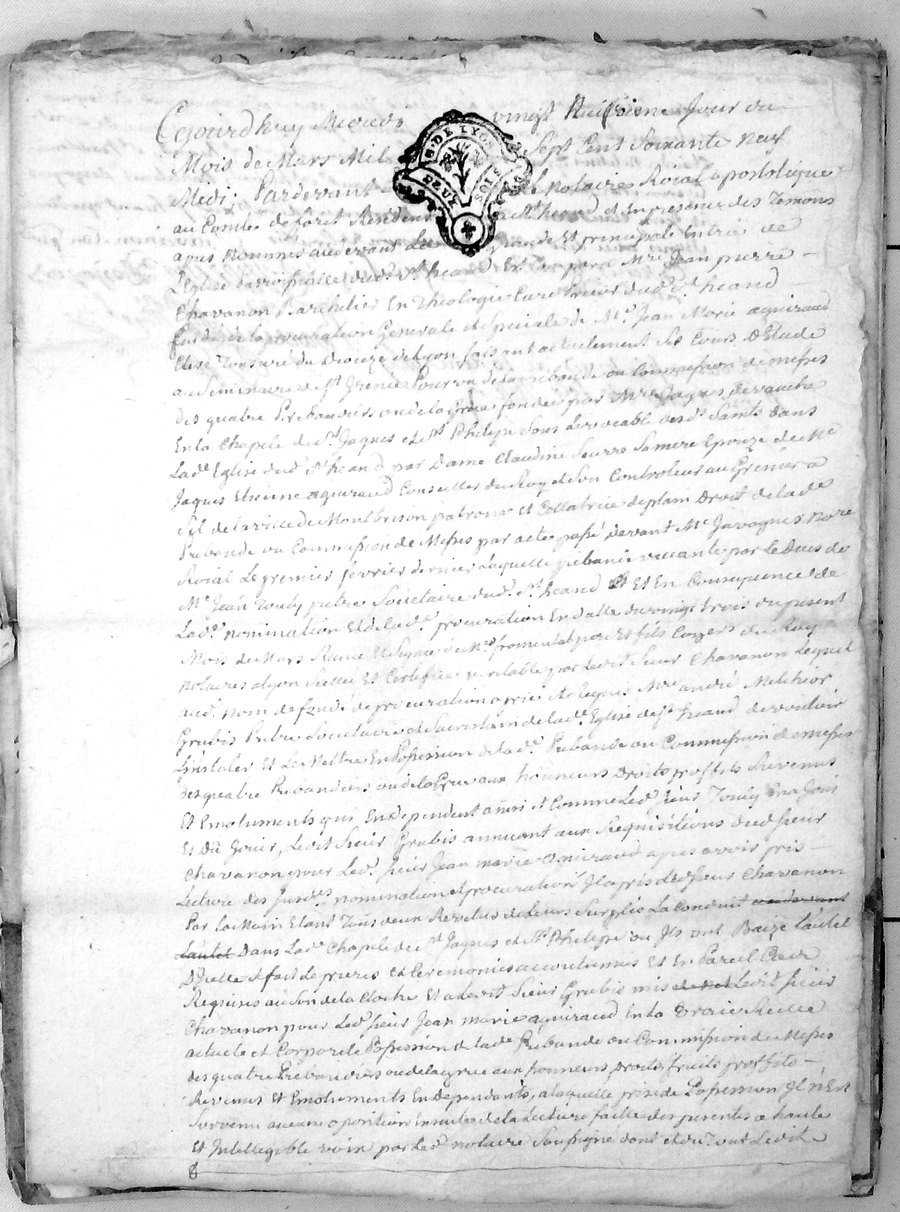 Cejourdhuy Mecredy vingt Huitieme Jour du
Mois de Mars Mil Sept Cent Soixante neuf
G. DE LYON
DEUX SOLS
Midi, Pardevant Notaire Roial apostolique
au Comté de foret Resident a St. heand et En presence des Temoins
apres Nommés audevant de grande Et principale Entrée de
L'Eglise parroissialle dud. St. heand Est Comparu Mre. Jean pierre
Chavanon Bachelier En Theologie Curé prieur dud. St. heand
fondé de la procuration Generale et Speciale de Mr. Jean Marie aguiraud
Clerc Tonsuré du Dioceze de Lyon faisant actuelement Ses Cours D'Etude
au Seminaire St. Irenée Pourvu de la prebande ou Commission de messes
des quatre Prebandiers ou de la Grace fondée par Mre. Jaques
En la Chapele de St. Jaques et St. Philipe Sous Le vocable desd. Saints dans
Lade. Eglise dud. St. heand par Dame Claudine Seurre Sa mere Epouze de Mr.
Jaques Etienne aguiraud Conseiller du Roy et Son Controleur au Grenier a
Sel de la ville de Montbrison patrone et Collatrice de plain Droit de lade.
Prebande ou Commission de Messes par acte passé devant Me. Javogues Nore.
Roial Le premier fevrier dernier Laquelle prebande vacante par Le Deces de
Mr. Jean Touly pretre Societaire dud. St. heand Et En Consequence de
Lade. nomination Et de lade. procuration En datte du vingt trois du present
Mois de Mars Recue Et Signée de Mes. fromental pere Et fils Coners. du Roy
Notaires a Lyon Scellée Et Certifiée veritable par Ledit Sieur Chavanon Lequel
aud. Nom de fondé de procuration a prié et Requis Mre. andré Melchior
Grubis Pretre Societaire et Sacristain de lade. Eglise de St. heand de vouloir
L'installer Et Le Mettre En Possession de lade. Prebande ou Commission de messes
des quatre Prebandiers ou de la Grace aux honneurs Droits proffits Revenus
Et Emoluments qui En dependent ainsi et Comme Led. Sieur Touly En a Joui
Et Dû Jouir, Ledit Sieur Grubis annuant aux Requisitions dud. Sieur
Chavanon pour Led. Sieur Jean marie aguiraud apres avoir pris
Lecture des Susdes. nomination et procuration Il a pris Led. Sieur Chavanon
Par la Main Etant Tous deux Revetus de Leurs Surplis La Conduit au devant
L'autel Dans Lade. Chapele de St. Jaques et St. Philipe ou Ils ont Baizé L'autel
D'Icelle et fait de prieres et Ceremonies accoutumées Et En Pareil Cas
Requises au Son de la Cloche Et a Ledit Sieur Grubis mis Ledit Sieur
Chavanon pour Led. Sieur Jean marie aguiraud En la vraie Reelle
actuele et Corporele Possession de lade. Prebande ou Commission de Messes
des quatre Prebandiers ou de la grace aux honneurs, Droits fruits proffits
Revenus Et Emoluments En dependants, a laquelle prise de Possession Il n'Est
Survenu aucune opposition Ensuite de la Lecture faitte des presentes a haute
Et Intelligible voix par Led. notaire Soussigné dont et du Tout Ledit